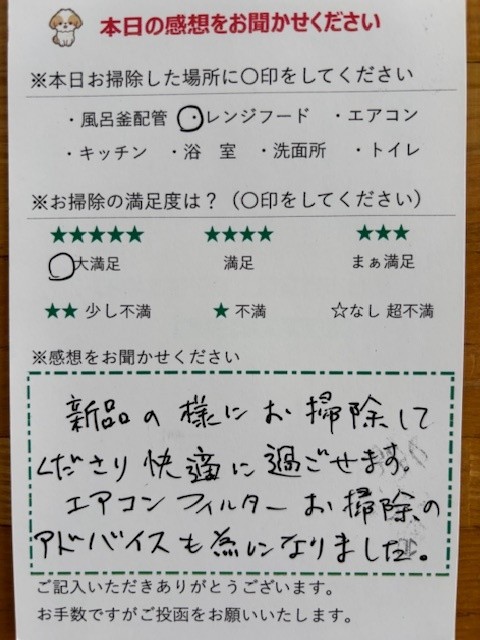 本日の感想をお聞かせください
※本日お掃除した場所に〇印をしてください
・風呂釜配管 ・レンジフード ・エアコン
・キッチン ・浴 室 ・洗面所 ・トイレ
※お掃除の満足度は？（〇印をしてください）
★★★★★ ★★★★ ★★★
大満足 満足 まぁ満足
★★ 少し不満 ★ 不満 ☆なし 超不満
※感想をお聞かせください
新品の様にお掃除して
くださり快適に過ごせます。
エアコンフィルターお掃除の
アドバイスも為になりました。
ご記入いただきありがとうございます。
お手数ですがご投函をお願いいたします。